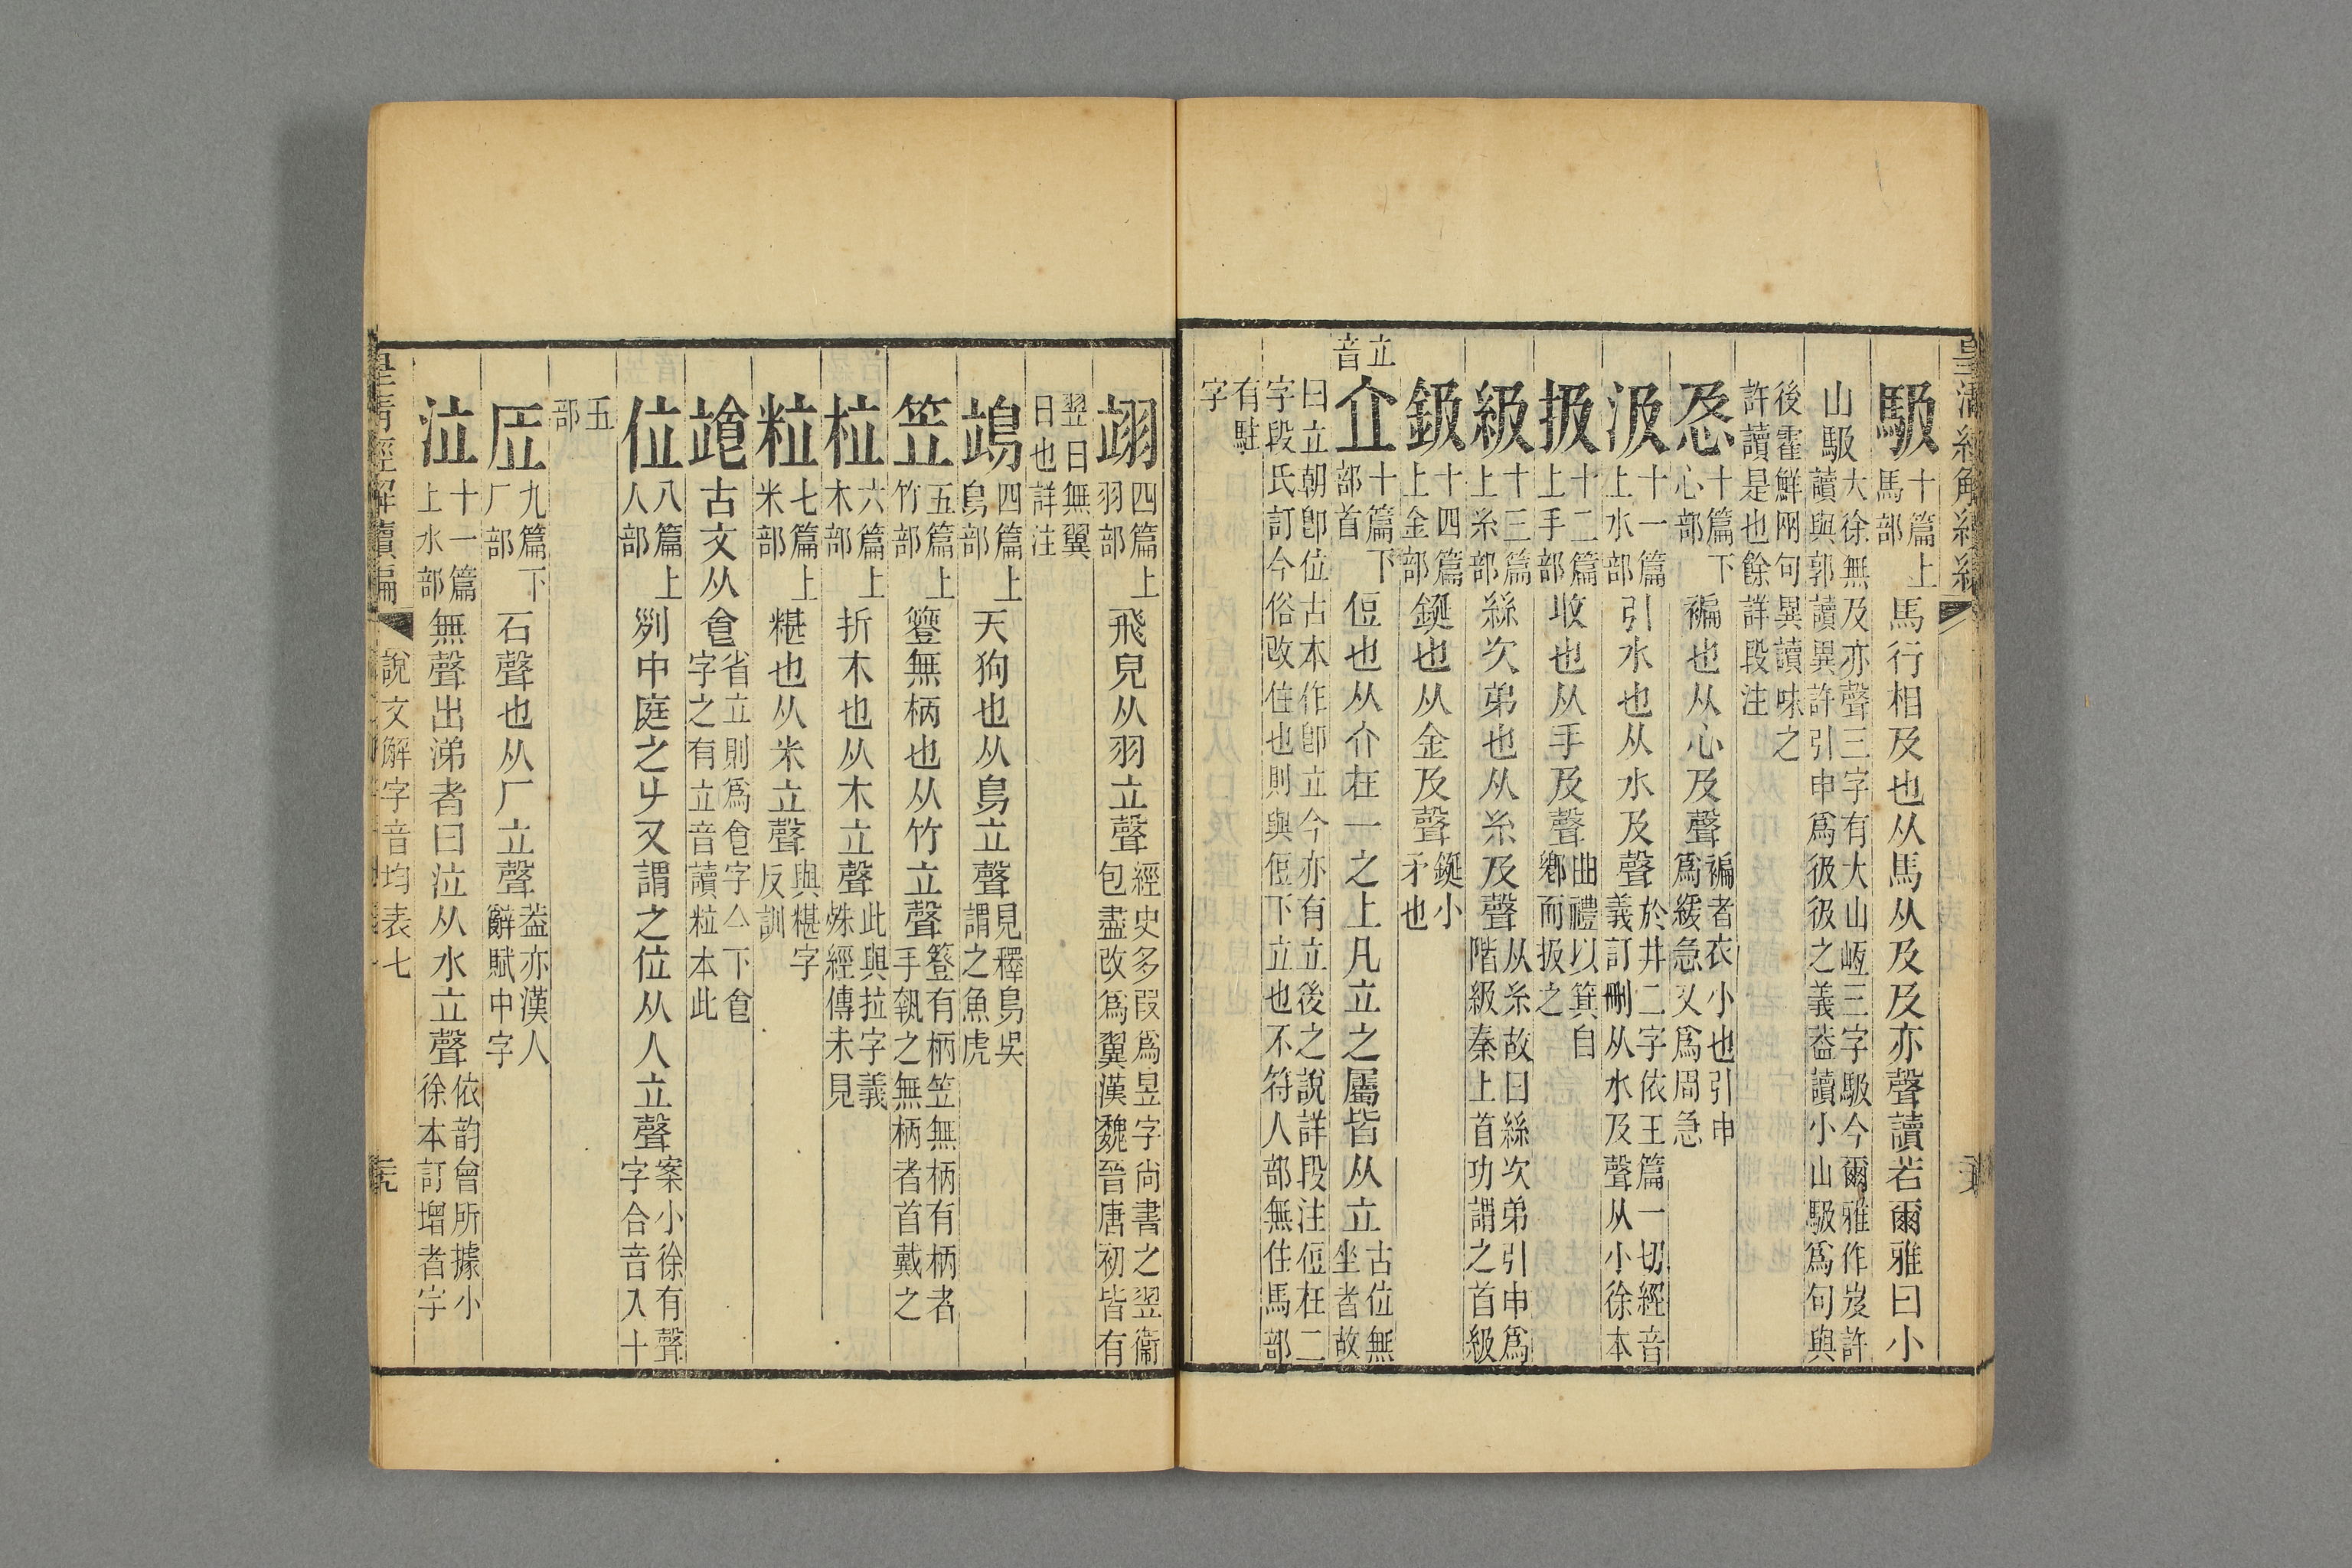 皇清經解續編
馺十篇上馬部馬行相及也从馬从及及亦聲讀若爾雅曰小
山馺大徐無及亦聲三字有大山峘三字馺今爾雅作岌許讀與郭讀異許引申爲彶彶之義葢讀小山馺爲句與
後霍鮮兩句異讀味之許讀是也餘詳段注
㤂十篇下心部褊也从心及聲褊者衣小也引申爲緩急又爲周急
汲十一篇上水部引水也从水及聲於井二字依王篇一切經音義訂刪从水及聲从小徐本
扱十二篇上手部收也从手及聲曲禮以箕自鄉而扱之
級十三篇上糸部絲次弟也从糸及聲从糸故曰絲次弟引申爲階級秦上首功謂之首級
鈒十四篇上金部鋋也从金及聲鋋小矛也
立音
立十篇下部首侸也从亣在一之上凡立之屬皆从立古位無坐者故
曰立朝卽位古本作卽立今亦有立後之說詳段注侸在二字段氏訂今俗改住也則與侸下立也不符人部無住馬部
有駐字
翊四篇上羽部飛皃从羽立聲經史多叚爲昱字尙書之翌衞包盡改爲翼漢魏晉唐初皆有
翌日無翼日也詳注
鴗四篇上鳥部天狗也从鳥立聲見釋鳥吳謂之魚虎
笠五篇上竹部簦無柄也从竹立聲簦有柄笠無柄有柄者手執之無柄者首戴之
柆六篇上木部折木也从木立聲此與拉字義殊經傳未見
粒七篇上米部糂也从米立聲與糂字反訓
䇐古文从𠊊省立則爲𠊊字亼下𠊊字之有立音讀粒本此
位八篇上人部列中庭之左右謂之位从人立聲案小徐有聲字合音入十
五部
厸九篇下厂部石聲也从厂立聲葢亦漢人辭賦中字
泣十一篇上水部無聲出涕者曰泣从水立聲依韵會所據小徐本訂增者字
皇清經解續編
說文解字音均表七